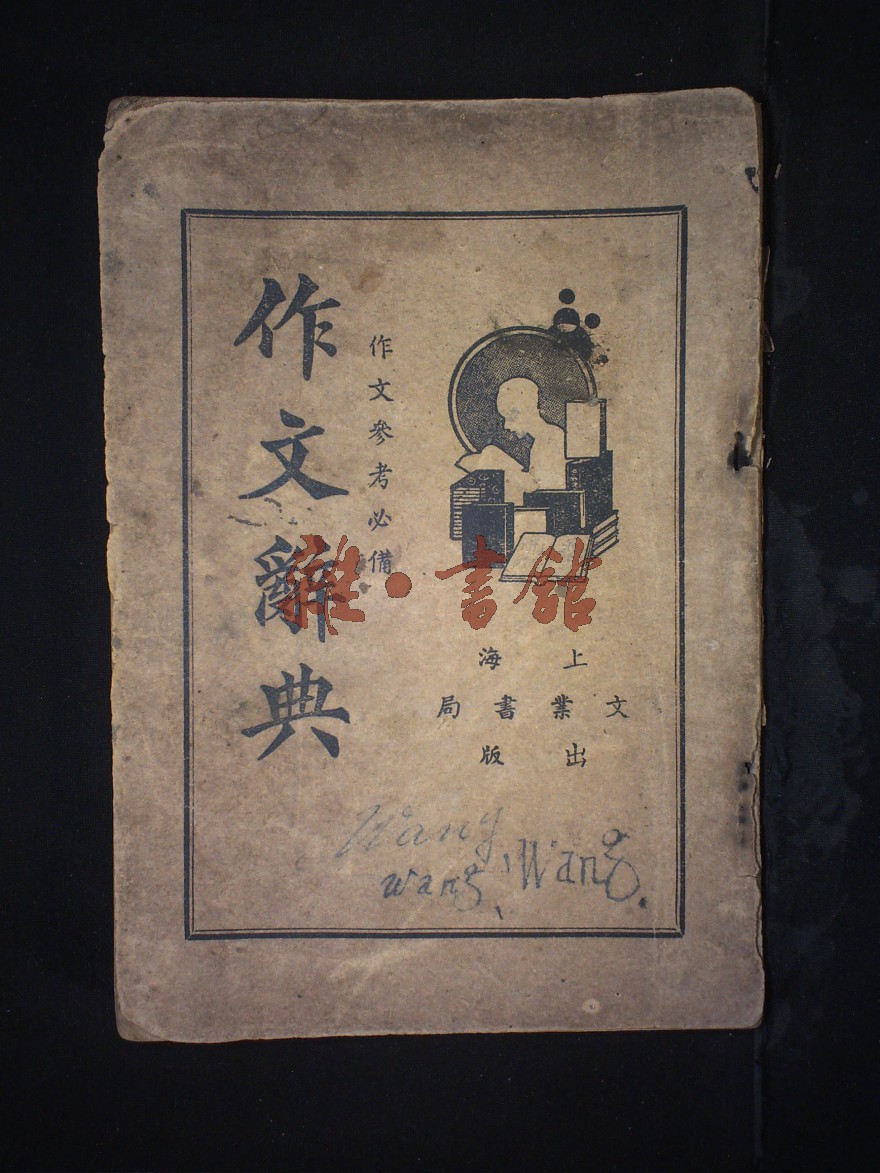 作文辭典
作文參考必備
上海
文業書局
出版
雜·書館
Wang
wang、Wang.